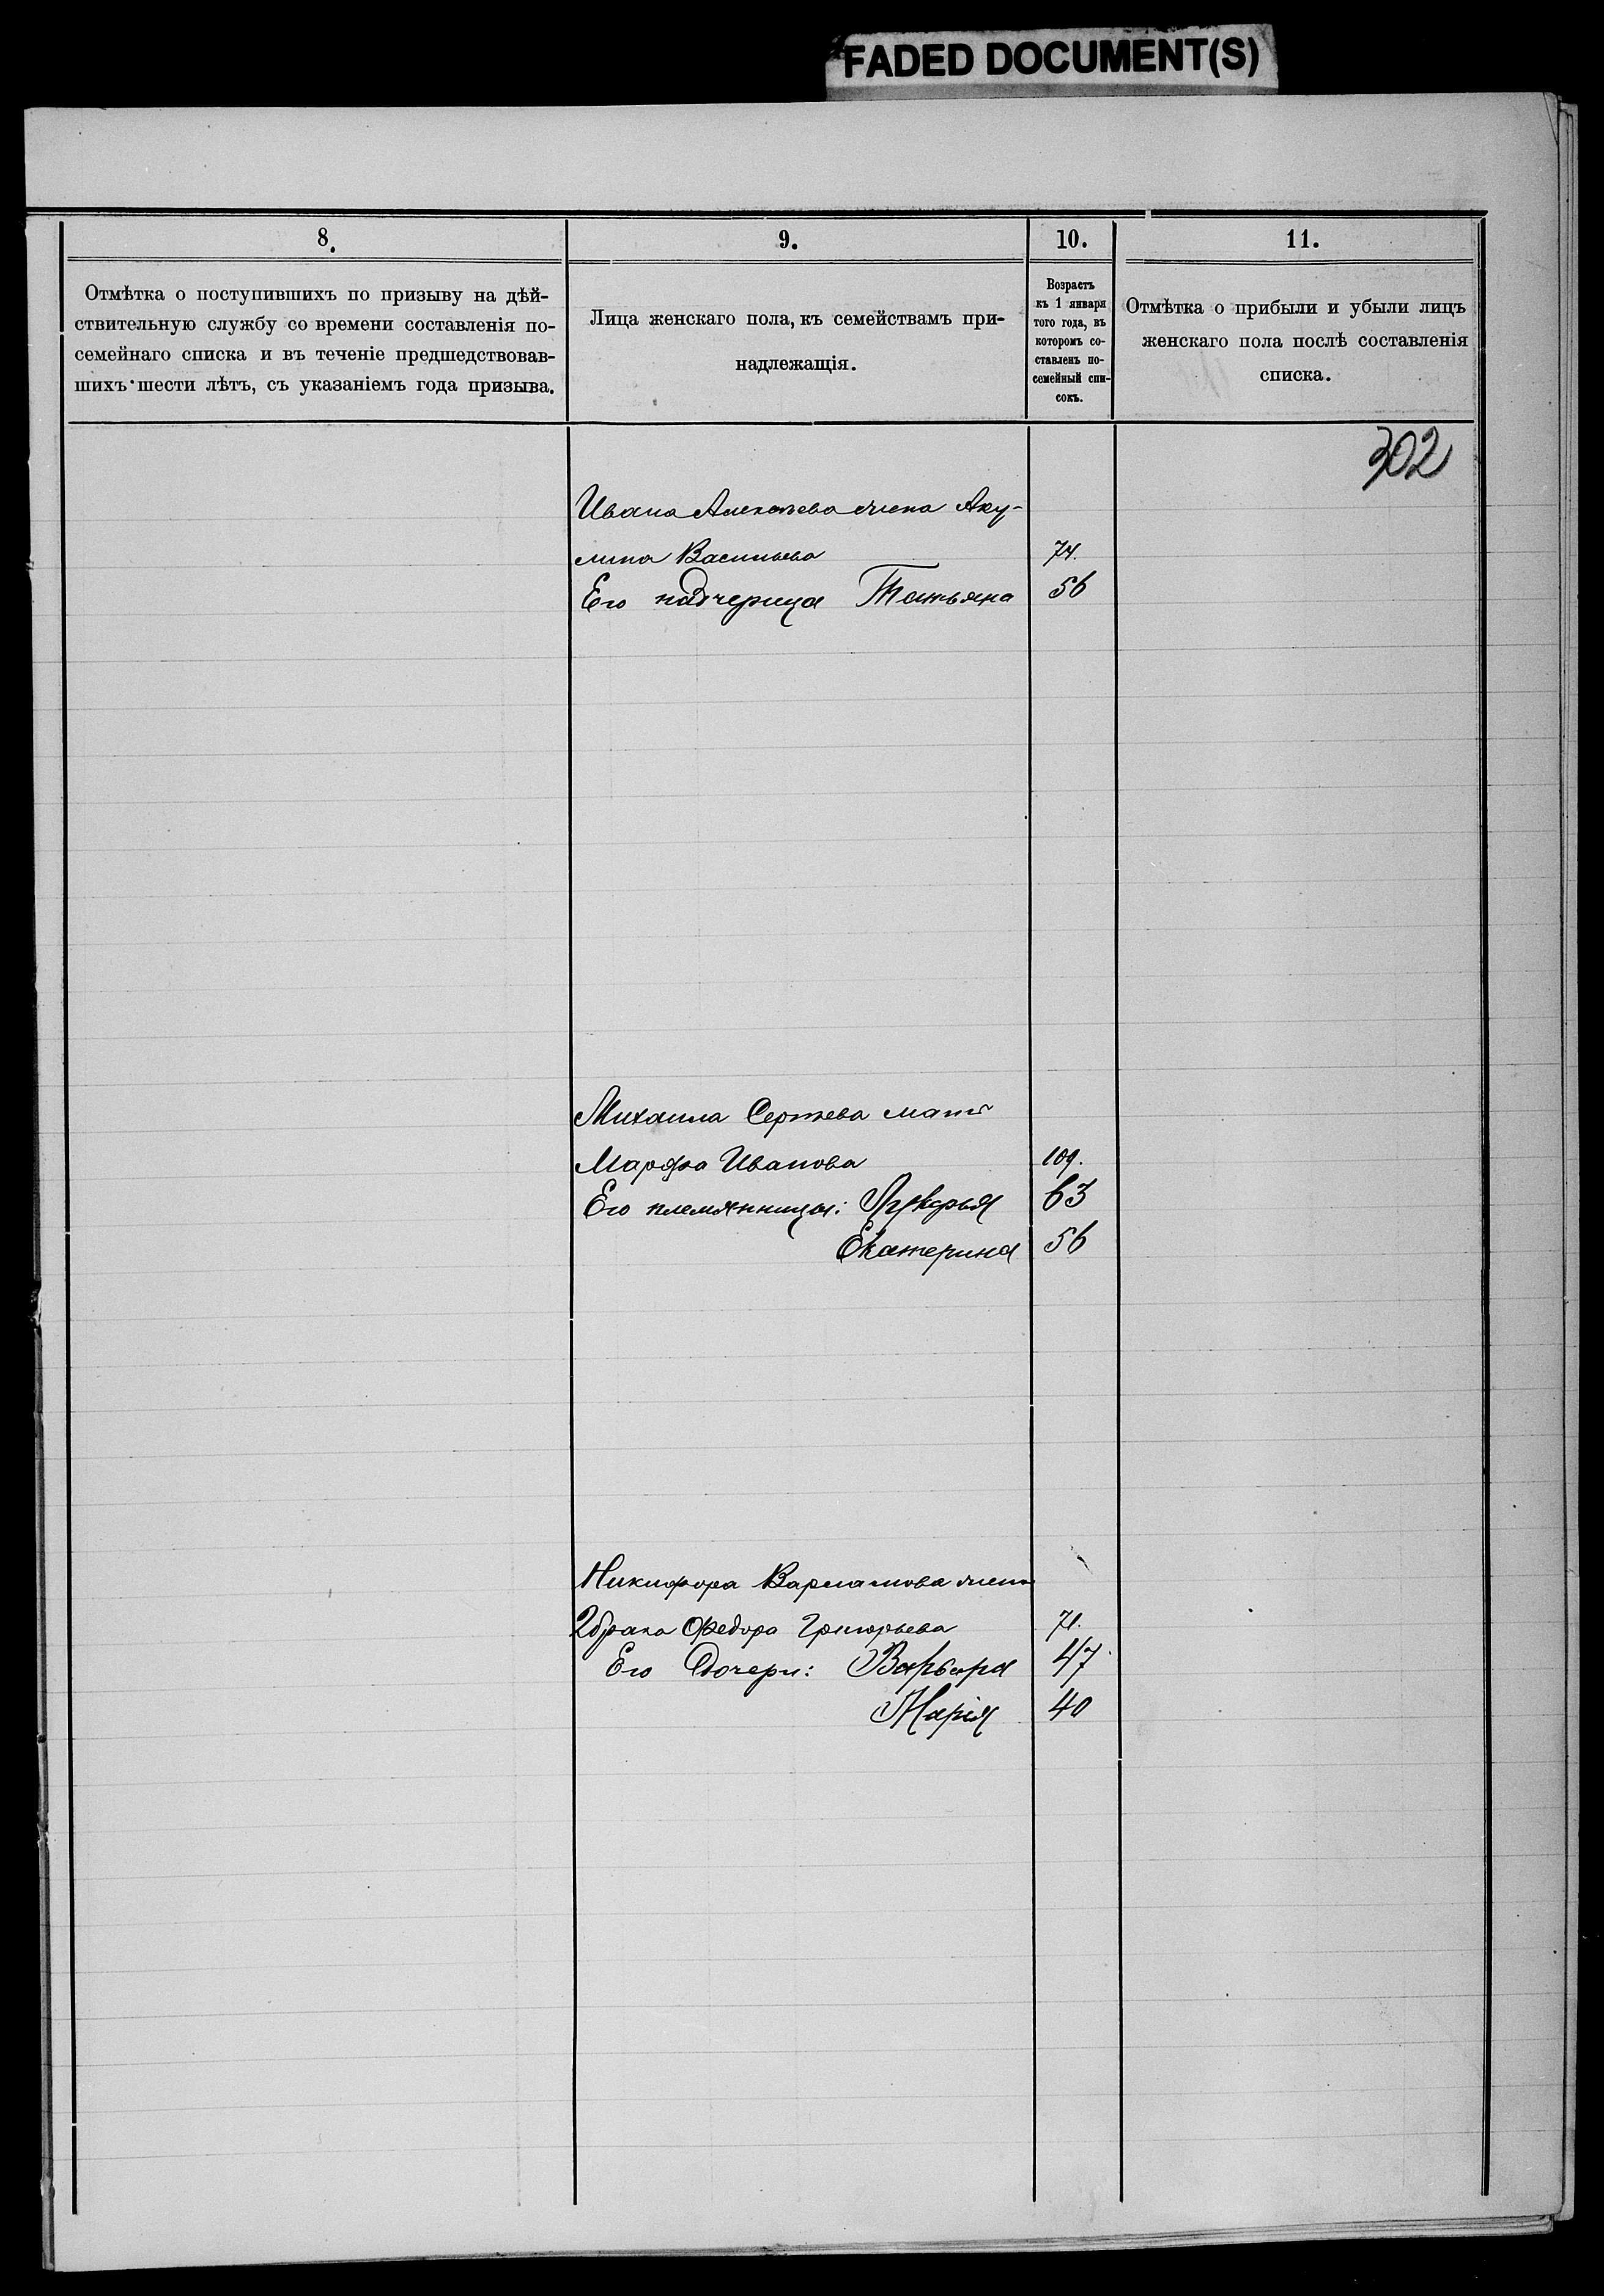 FADED DOCUMENT(S)
8.
Отмѣтка о поступившихъ по призыву на дѣй-
ствительную службу со времени составленія по-
семейнаго списка и въ теченіе предшедствовав-
шихъ шести лѣтъ, съ указаніемъ года призыва.
9.
Лица женскаго пола, къ семействамъ при-
надлежащія.
10.
Возрастъ
къ 1 января
того года, въ
которомъ со-
ставленъ по-
семейный спи-
сокъ.
11.
Отмѣтка о прибыли и убыли лицъ
женскаго пола послѣ составленія
списка.
302
Ивана Алексѣева жена Аку-
лина Васильева 74.
Его падчерица Татьяна 56
Михаила Сергѣева мать
Марфа Иванова 109.
Его племянницы: Лукерья 63
Екатерина 56
Никифора Варламова жена
2 брака Федора Григорьева 71.
Его дочери: Варвара 47
Марія 40